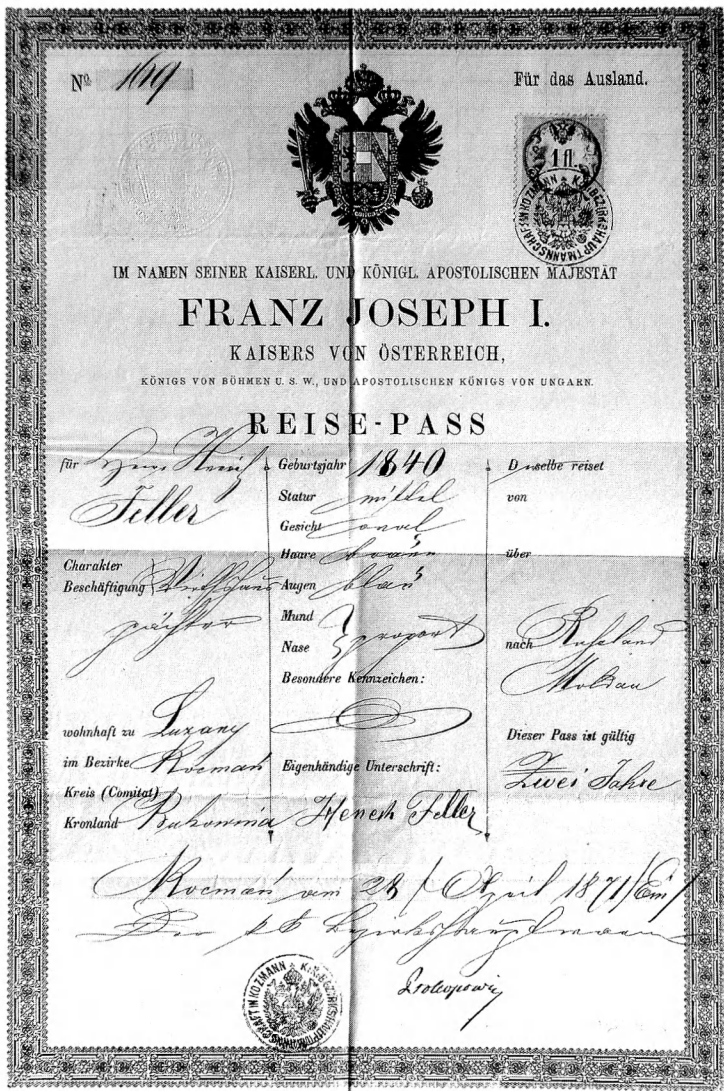 No 1619
Für das Ausland.
1 fl.
K.K. BEZIRKSHAUPTMANNSCHAFT IN KOTZMANN
IM NAMEN SEINER KAISERL. UND KÖNIGL. APOSTOLISCHEN MAJESTÄT
FRANZ JOSEPH I.
KAISERS VON ÖSTERREICH,
KÖNIGS VON BÖHMEN U. S. W., UND APOSTOLISCHEN KÖNIGS VON UNGARN.
REISE-PASS
für Herrn
Feller
Charakter
Beschäftigung Wirthshaus
pächter
wohnhaft zu Luzany
im Bezirke Kocmań
Kreis (Comitat)
Kronland Bukowina
Geburtsjahr 1840
Statur mittel
Gesicht oval
Haare braun
Augen blau
Mund
Nase proport
Besondere Kennzeichen:
Eigenhändige Unterschrift:
Henech Feller
Derselbe reiset
von
über
nach Rußland
Moldau
Dieser Pass ist gültig
Zwei Jahre
Kocmań am 28/ April 1871
Der k k Bezirkshauptmann
K.K. BEZIRKSHAUPTMANNSCHAFT IN KOZMANN